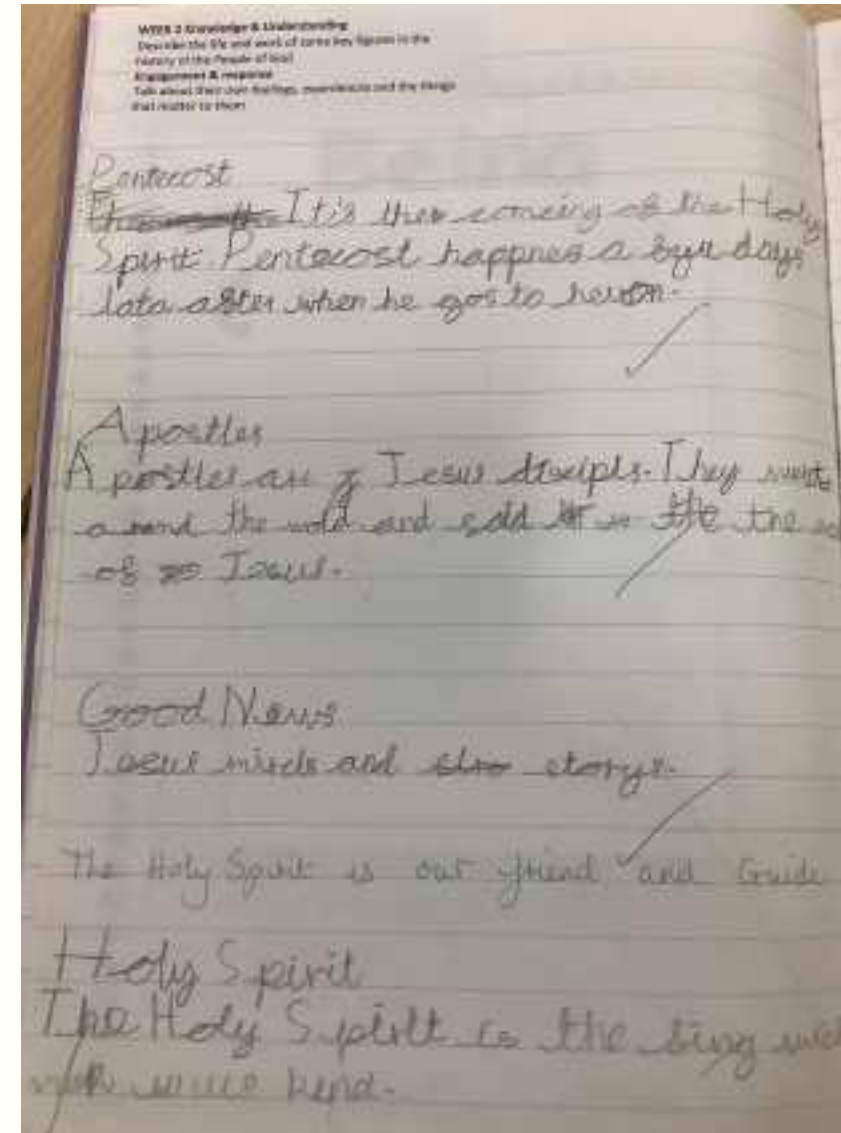 WEEK 2 Knowledge & Understanding
Describe the life and work of some key figures in the
history of the People of God
Engagement & response
Talk about their own feelings, experiences and the things
that matter to them
Pentecost
It is the coming of the Holy
Spirit. Pentecost happnes a days
lata after when he gos to
Apostles
Apostles are Jesus discipls. They
around the wold and the
of Jesus.
Good News
Jesus and storys.
The Holy Spirit is our friend and Guide
Holy Spirit
The Holy Spirit is the